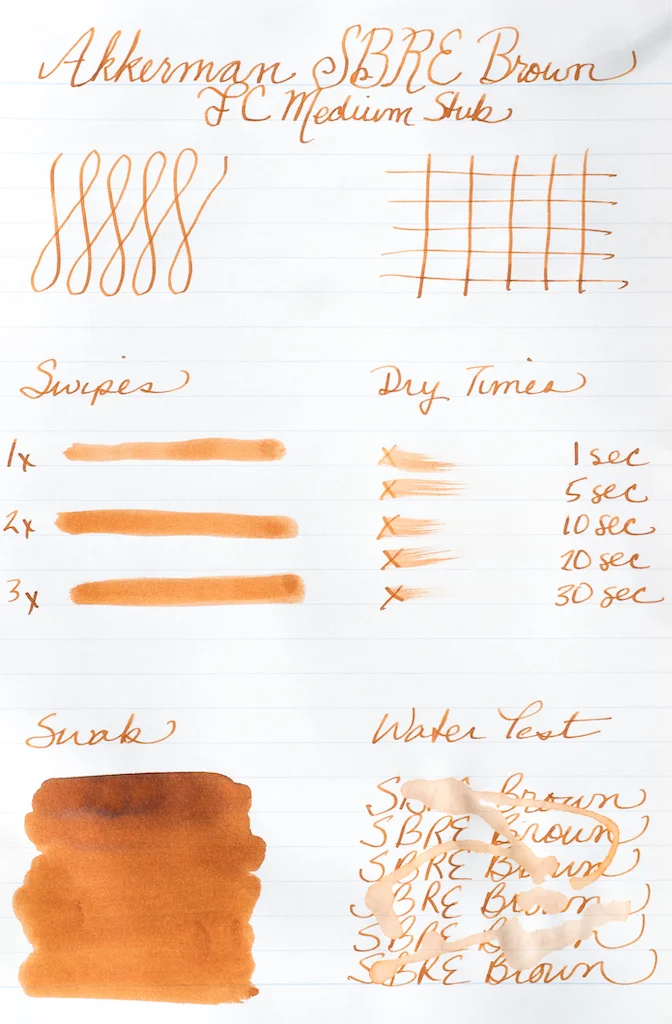 Akkerman SBRE Brown
FC Medium Stub
Swipes
1x
2x
3x
Dry Times
x 1 sec
x 5 sec
x 10 sec
x 20 sec
x 30 sec
Swab
Water Test
SBRE Brown
SBRE Brown
SBRE Brown
SBRE Brown
SBRE Brown
SBRE Brown